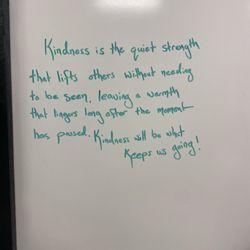 Kindness is the quiet strength
that lifts others without needing
to be seen, leaving a warmth
that lingers long after the moment
has passed. Kindness will be what
keeps us going!